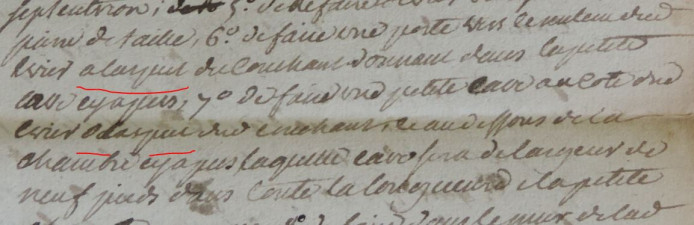 septentrion, 5o de faire
pierre de taille, 6o de faire une porte vers le milieu dud
évier a laspect du couchant donnant dans la petite
cave cy apres, 7o de faire une petite cave au coté dud
évier a laspect dud couchant, et au dessous de la
chambre cy apres laquelle cave sera de largeur de
neuf pieds dans toute la longueur de la petite
de faire dans le mur de lad